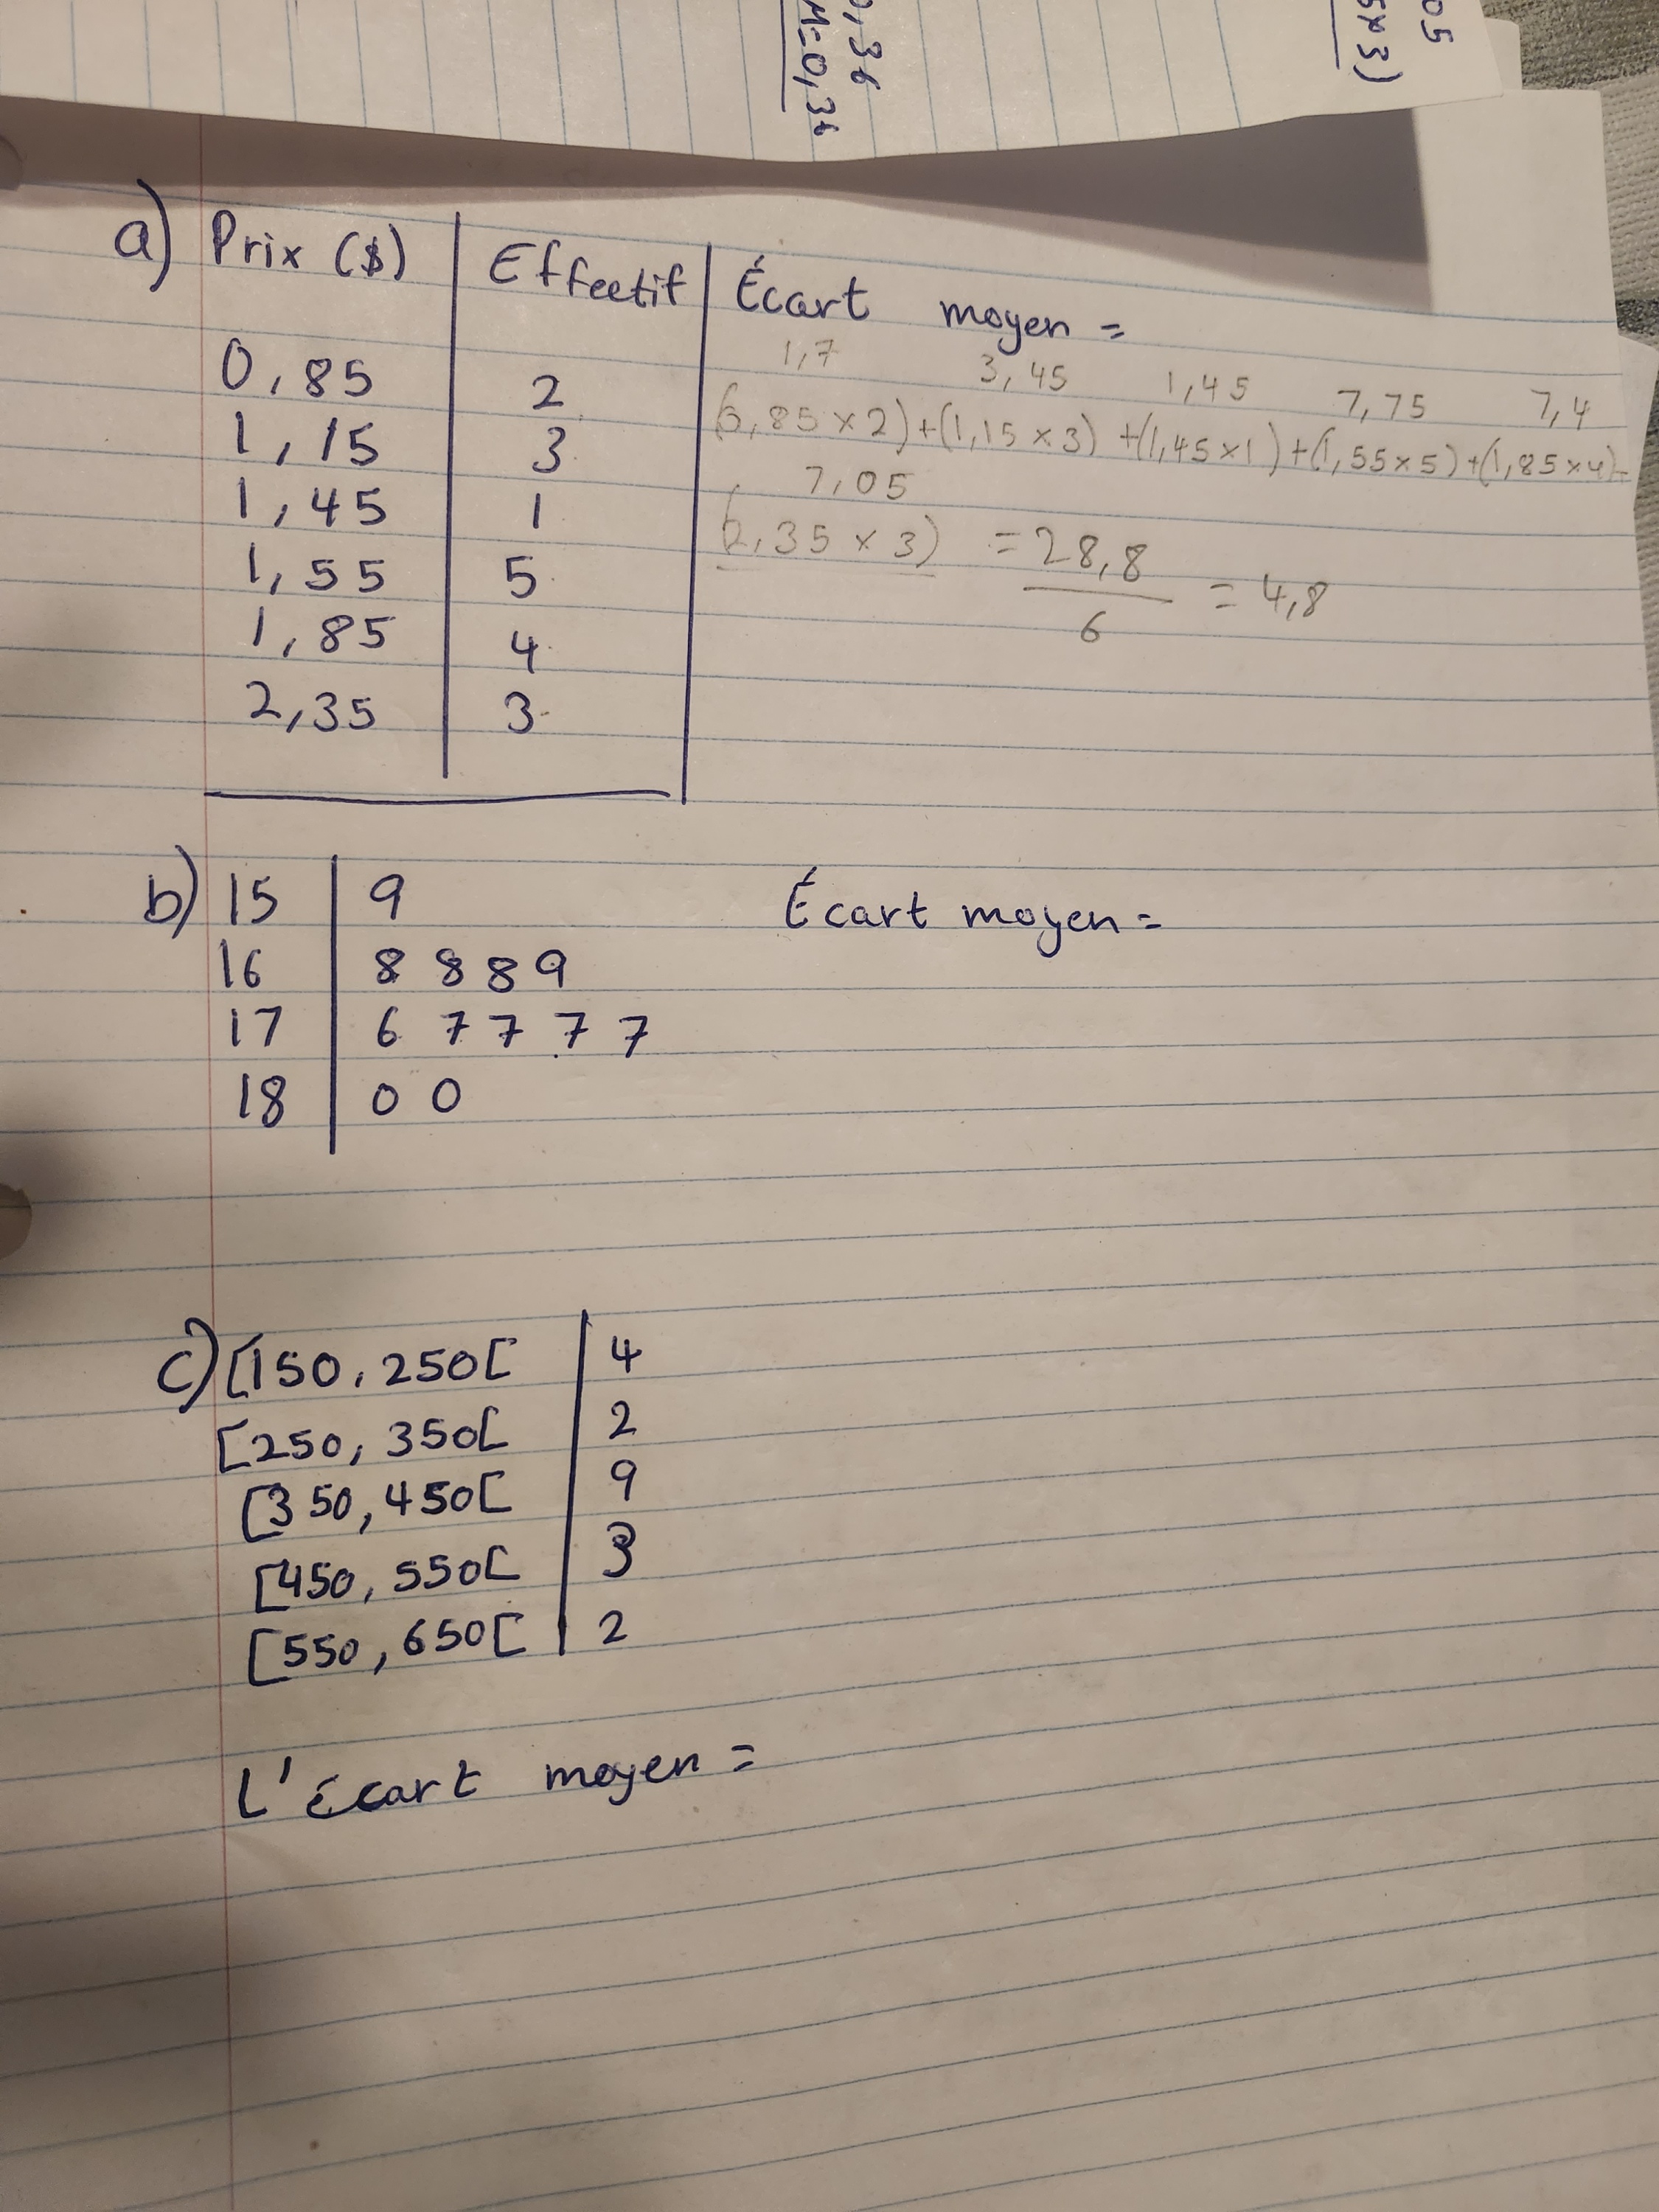 0,36
M=0,36
05
5×3)
a) Prix ($) Effectif Écart moyen =
1,7 3,45 1,45 7,75 7,4
0,85 2 (0,85×2)+(1,15×3)+(1,45×1)+(1,55×5)+(1,85×4)+
1,15 3 7,05
1,45 1 (2,35×3) = 28,8
1,55 5 6 = 4,8
1,85 4
2,35 3
b) 15 9 Écart moyen =
16 8 8 8 9
17 6 7 7 7 7
18 0 0
c) [150, 250[ 4
[250, 350[ 2
[350, 450[ 9
[450, 550[ 3
[550, 650[ 2
L'Écart moyen =